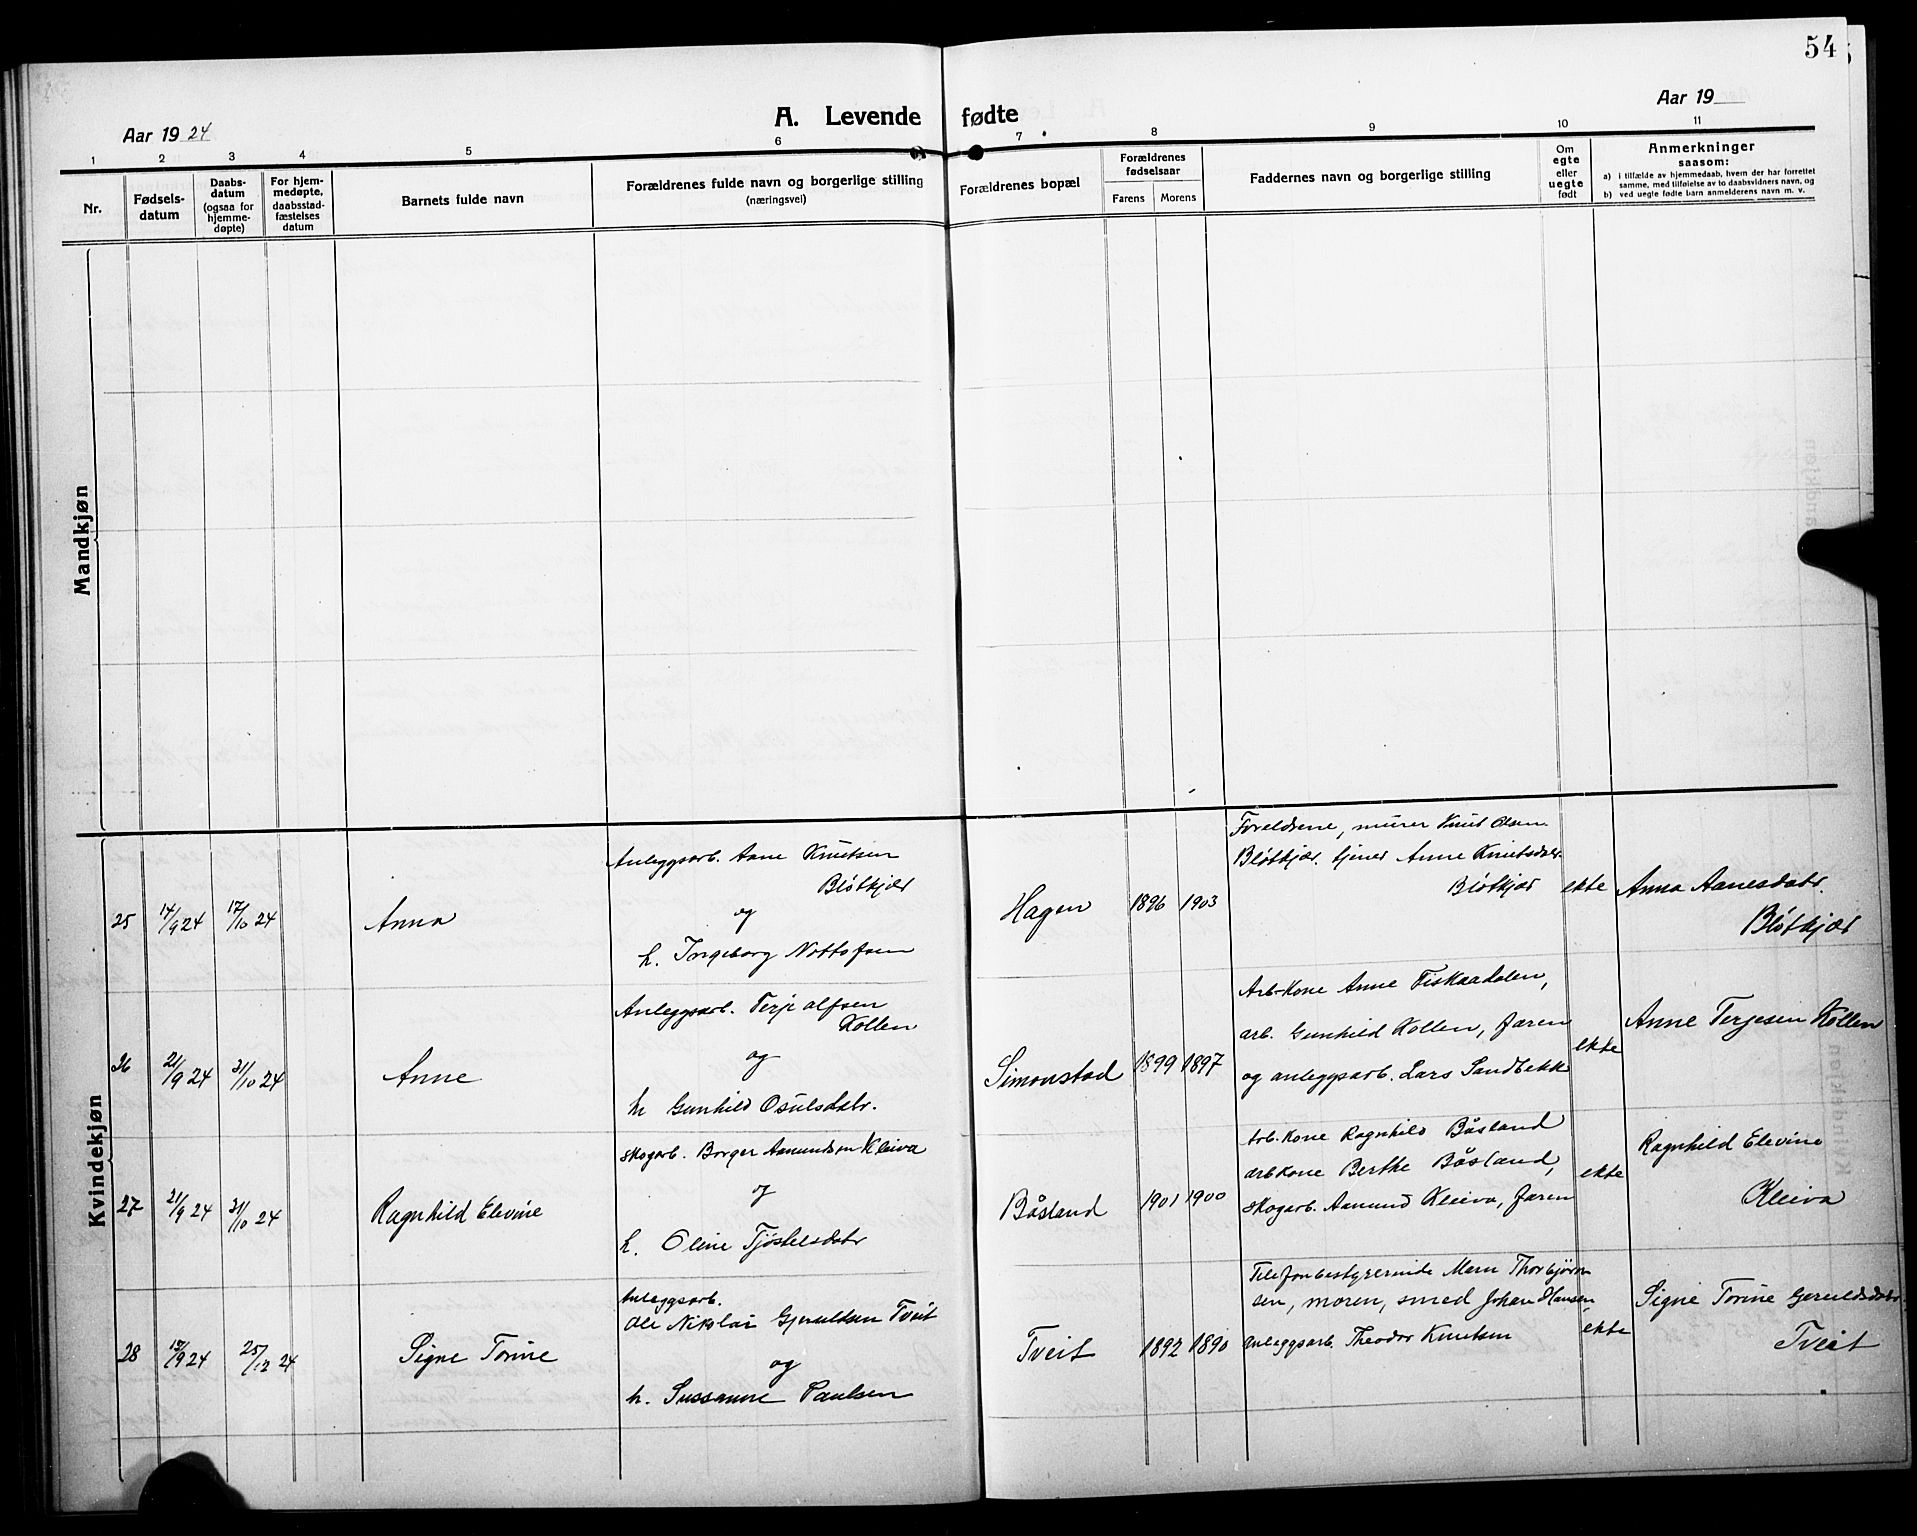 54
Aar 19 24
A. Levende fødte
Aar 19
1 2 3 4 5 6 7 8 9 10 11
Nr.
Fødsels-
datum
Daabs-
datum
(ogsaa for
hjemme-
døpte)
For hjem-
medøpte,
daabsstad-
fæstelses
datum
Barnets fulde navn
Forældrenes fulde navn og borgerlige stilling
(næringsvei)
Forældrenes bopæl
Forældrenes
fødselsaar
Farens
Morens
Faddernes navn og borgerlige stilling
Om
egte
eller
uegte
født
Anmerkninger
saasom:
a) i tilfælde av hjemmedaab, hvem der har forrettet
samme, med tilføielse av to daabsvidners navn, og
b) ved uegte fødte barn anmelderens navn m. v.
Mandkjøn
Kvindekjøn
25
14/9 24
12/10 24
Anna
Anleggsarb. Aane Knutsen
Bløtkjær
og
h. Ingeborg Nottofsen
Hagen
1896
1903
Foreldrene, murer Knut Olsen
Bløtkjær. tjener Anne Knutsdatr.
Bløtkjær
ekte
Anna Aanesdatr.
Bløtkjær
26
21/9 24
31/10 24
Anne
Anleggsarb. Terje Alfsen
Kollen
og
h. Gunhild Osulsdatr.
Simonstad
1899
1897
Arb.kone Anne Fiskaadalen,
arb. Gunhild Kollen, faren
og anleggsarb. Lars Sandbekk
ekte
Anne Terjesen Kollen
27
21/9 24
31/10 24
Ragnhild Elevine
Skogarb. Borger Aamundsen Kleiva
og
h. Oline Tjøstelsdatr
Båsland
1901
1900
Arb.kone Ragnhild Båsland
arbkone Berthe Båsland,
skogarb. Aamund Kleiva, faren
ekte
Ragnhild Elevine
Kleiva
28
13/9 24
25/12 24
Signe Torine
Anleggsarb.
Ole Nikolai Gjeruldsen Tveit
og
h. Sussanne Paulsen
Tveit
1892
1890
Telefonbestyrerinde Maren Thorbjørn
sen, moren, smed Johan Hansen,
anleggsarb. Theodor Knutsen
ekte
Signe Torine Geruldsdatr
Tveit